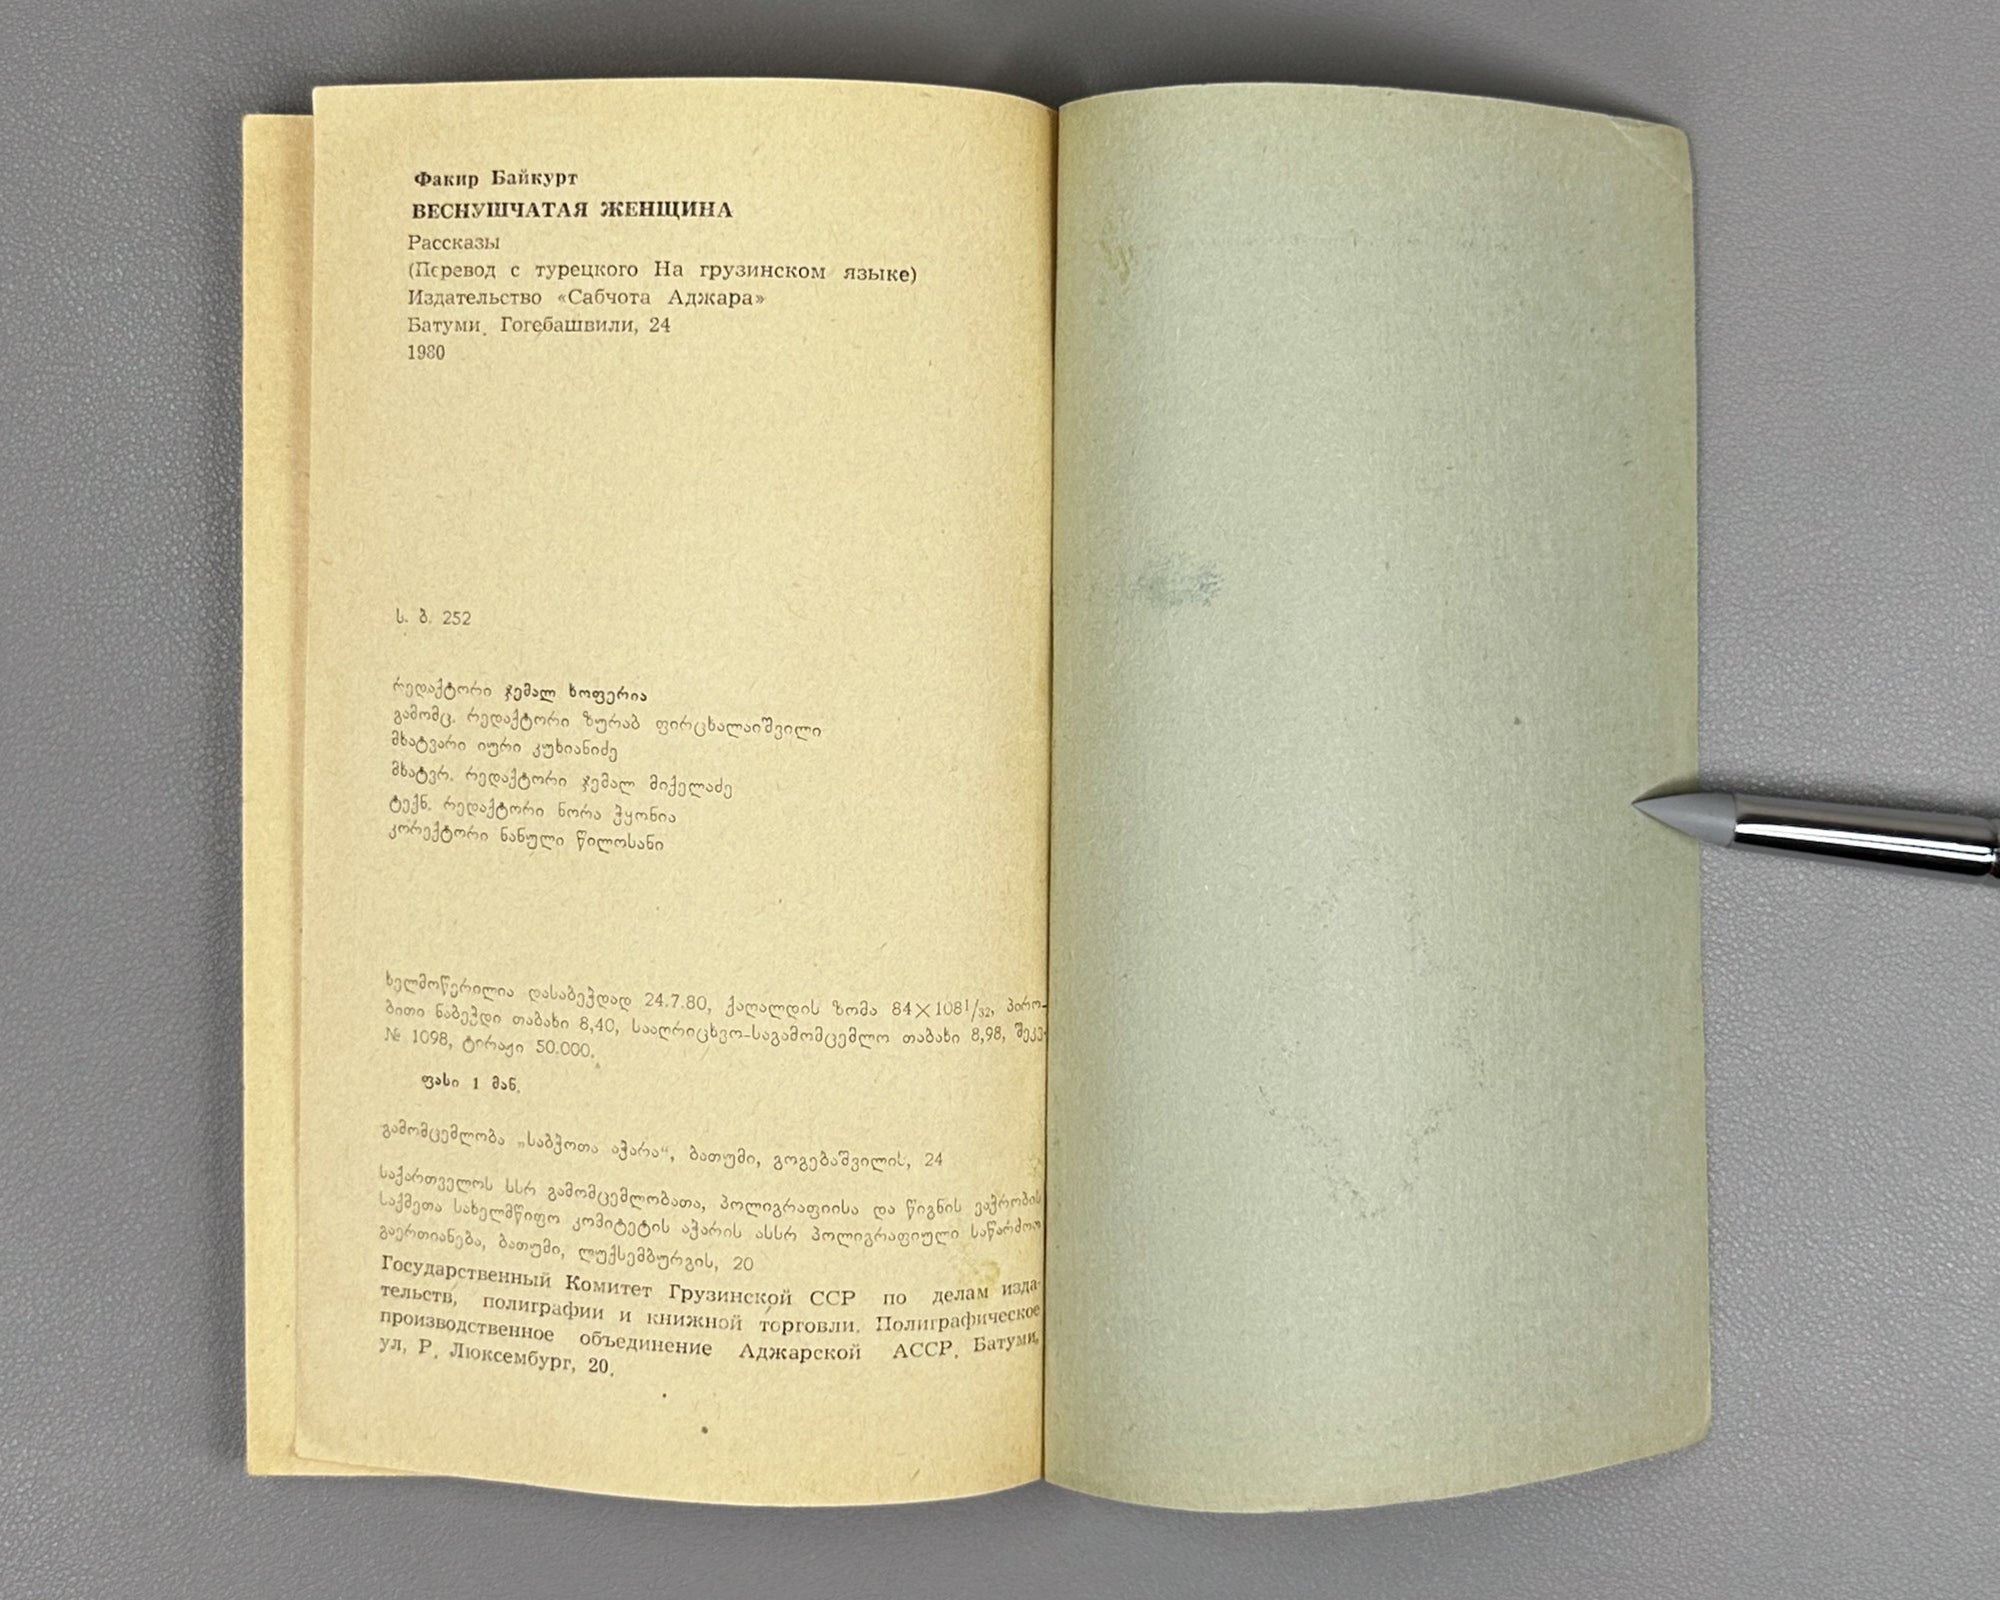 Факир Байкурт
ВЕСНУШЧАТАЯ ЖЕНЩИНА
Рассказы
(Перевод с турецкого На грузинском языке)
Издательство «Сабчота Аджара»
Батуми. Гогебашвили, 24
1980
ს. ბ. 252
რედაქტორი ჯემალ ხოფერია
გამომც. რედაქტორი ზურაბ ფირცხალაიშვილი
მხატვარი იური კუხიანიძე
მხატვრ. რედაქტორი ჯემალ მიქელაძე
ტექნ. რედაქტორი ნორა ჭყონია
კორექტორი ნანული წილოსანი
ხელმოწერილია დასაბეჭდად 24.7.80, ქაღალდის ზომა 84×108¹/₃₂, პირო-
ბითი ნაბეჭდი თაბახი 8,40, სააღრიცხვო-საგამომცემლო თაბახი 8,98, შეკვ.
№ 1098, ტირაჟი 50.000.
ფასი 1 მან.
გამომცემლობა „საბჭოთა აჭარა“, ბათუმი, გოგებაშვილის, 24
საქართველოს სსრ გამომცემლობათა, პოლიგრაფიისა და წიგნის ვაჭრობის
საქმეთა სახელმწიფო კომიტეტის აჭარის ასსრ პოლიგრაფიული საწარმოო
გაერთიანება, ბათუმი, ლუქსემბურგის, 20
Государственный Комитет Грузинской ССР по делам изда-
тельств, полиграфии и книжной торговли. Полиграфическое
производственное объединение Аджарской АССР. Батуми,
ул, Р. Люксембург, 20.